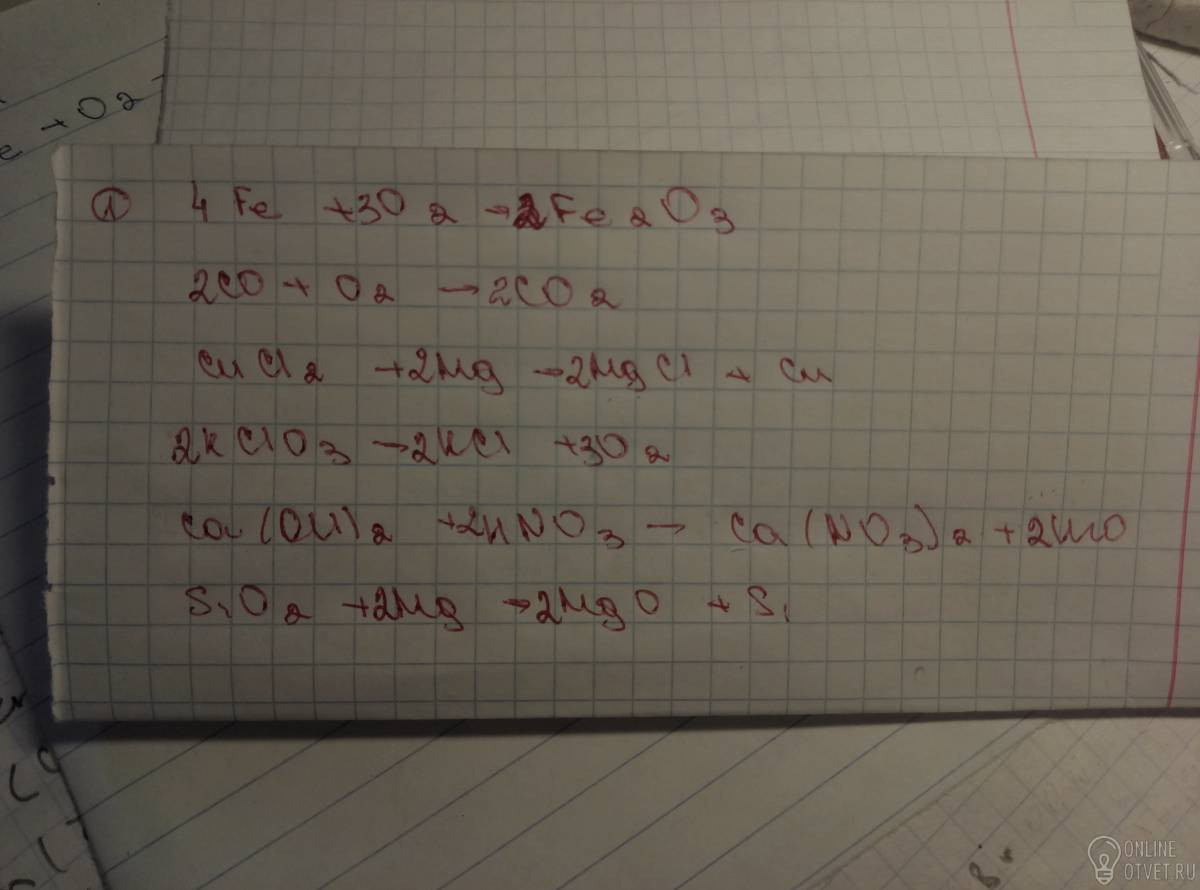 + O2
① 4Fe +3O2 → 2Fe2O3
2CO + O2 → 2CO2
CuCl2 +2Mg → 2MgCl + Cu
2KClO3 → 2KCl +3O2
Ca(OH)2 +2HNO3 → Ca(NO3)2 +2HHO
SiO2 +2Mg → 2MgO + Si
ONLINE
OTVET.RU